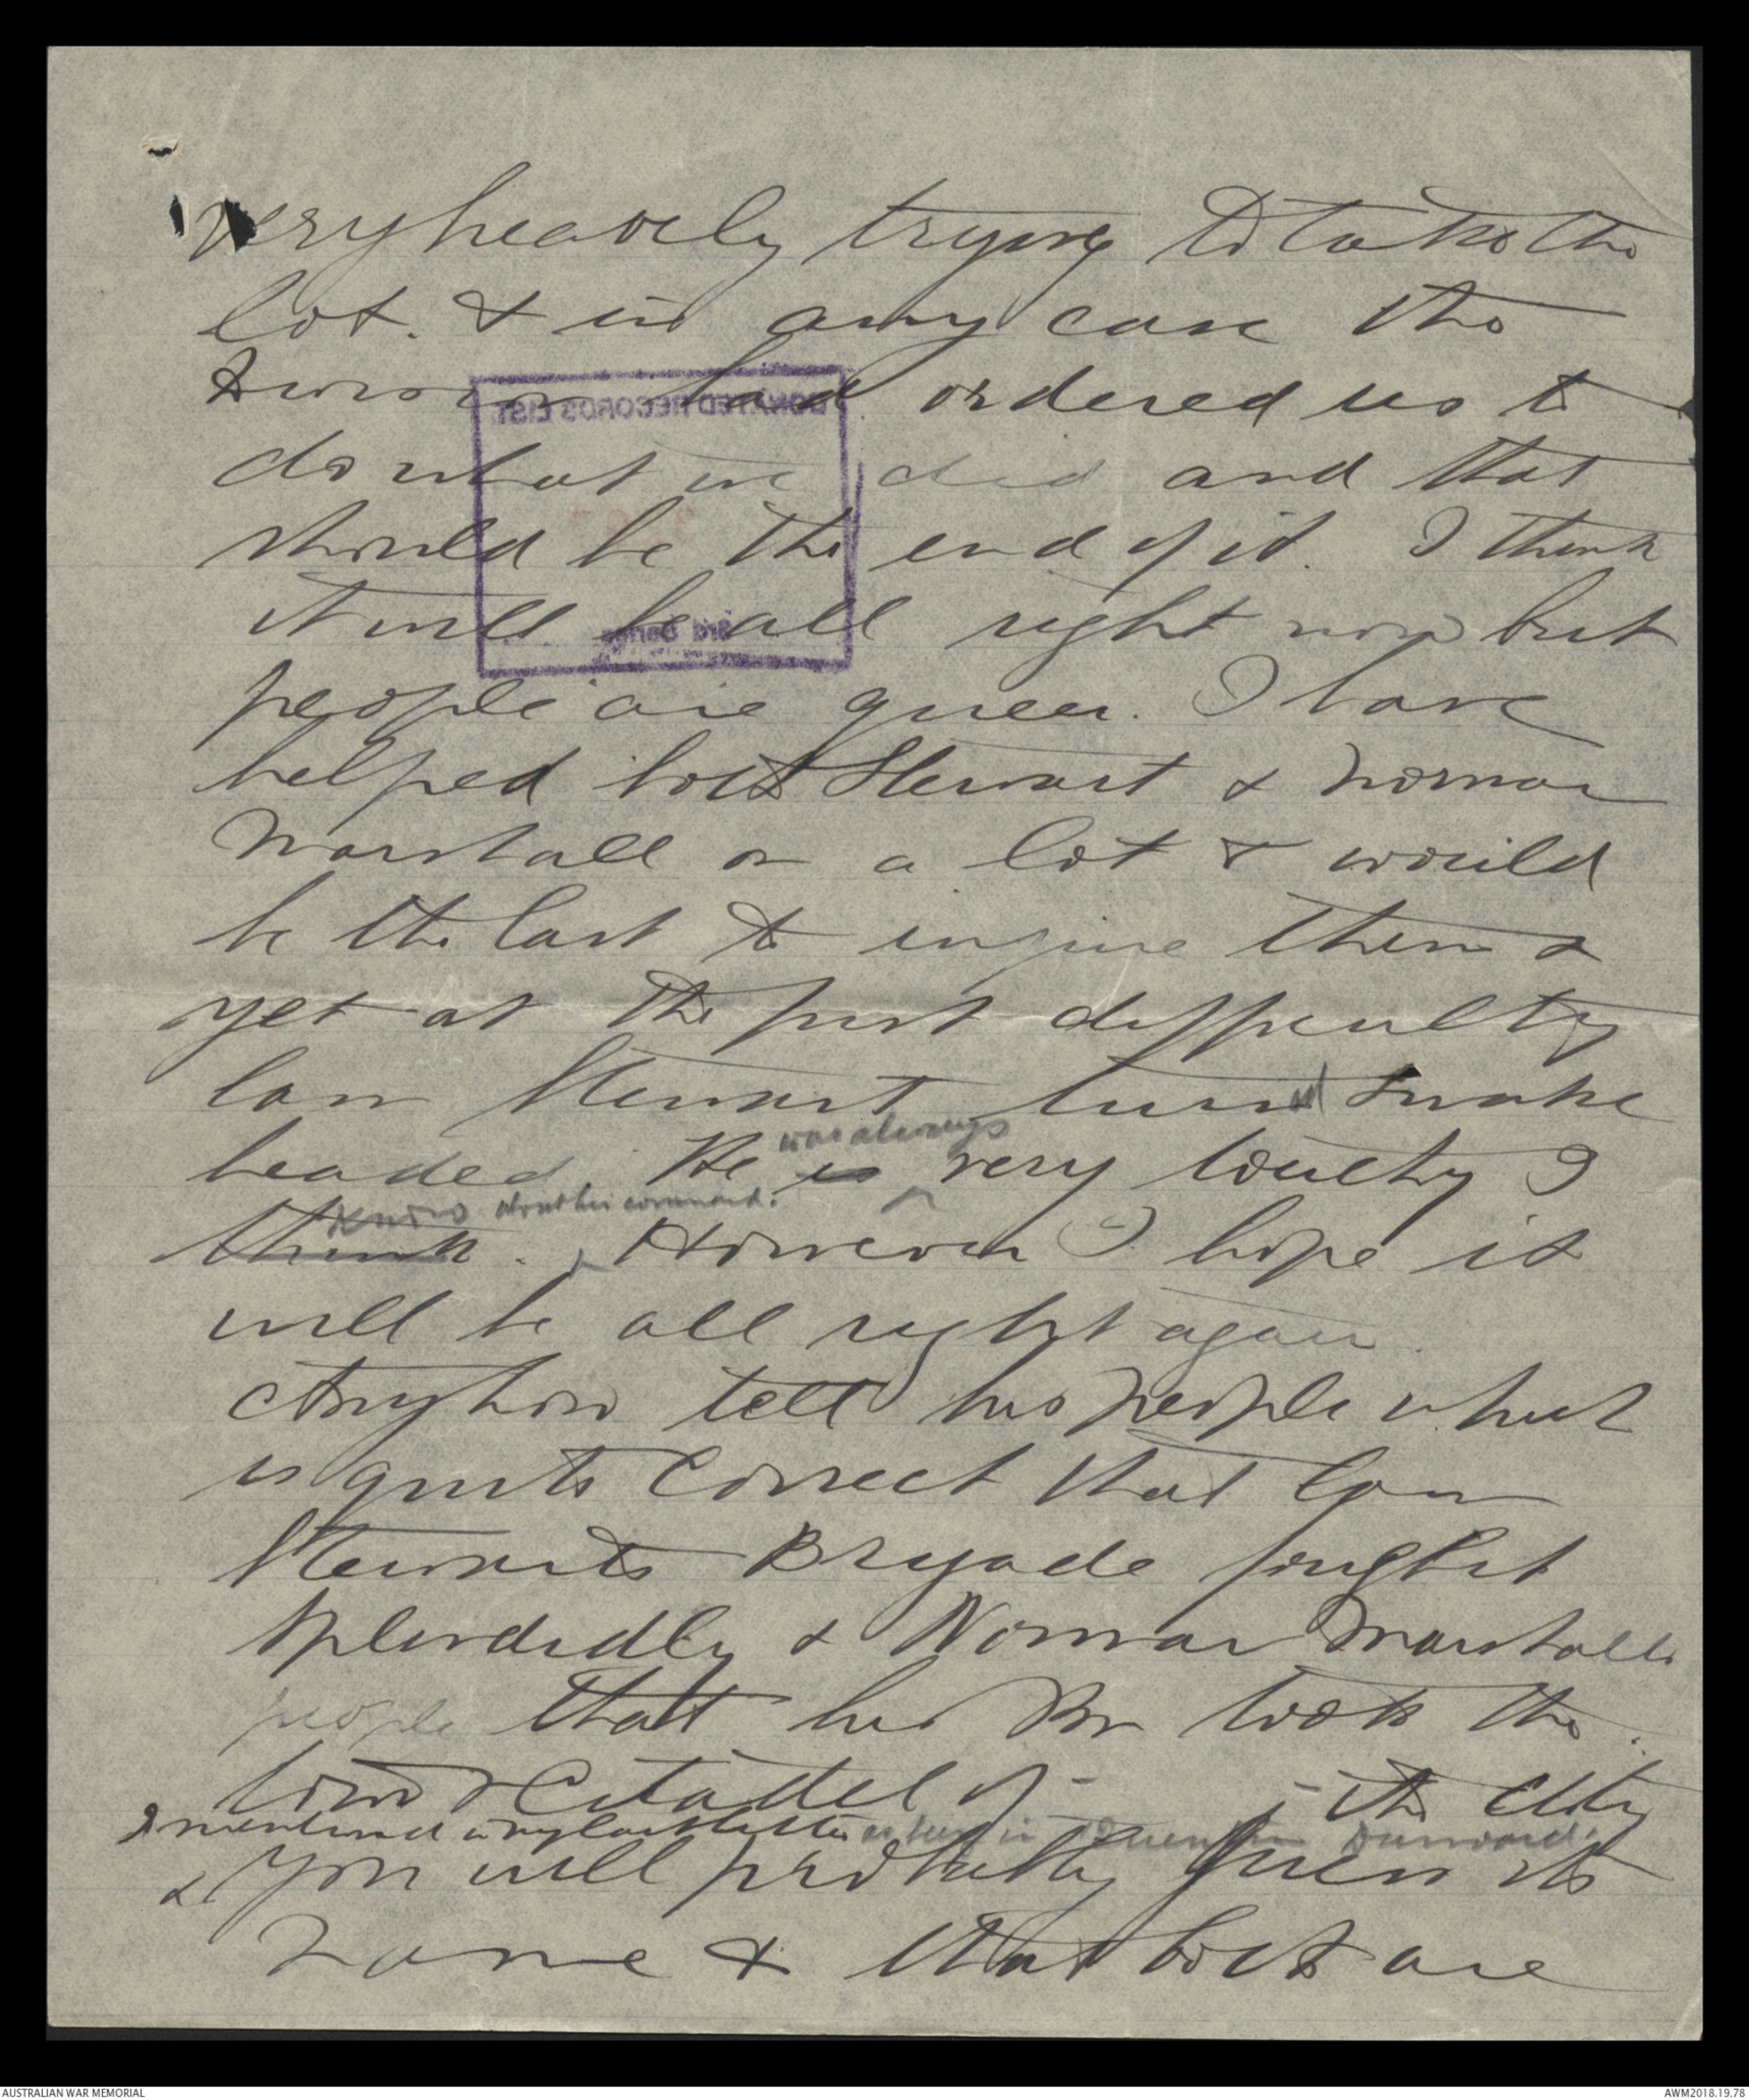 very heavily trying to take the
lot. & in any case the
Division had ordered us to
do what we did and that
should be the end of it. I think
it will be all right now but
people are queer. I have
helped both Stewart & Norman
Marshall on a lot & would
be the last to injure them &
yet at the first difficulty
Cam Stewart turned snake
was always
headed. He is very touchy I
know about his command.
think. However I hope it
will be all right again.
Anyhow tell his people what
is quite correct that Cam
Stewarts Brigade fought
splendidly & Norman Marshalls
people that his Bn took the
town & Citadel of - - the City
I mentioned in my last letter as being in Quentin Durward.
& you will probably guess its
name & that both are
DONATED RECORDS LIST
3rd Series
AUSTRALIAN WAR MEMORIAL
AWM2018.19.78